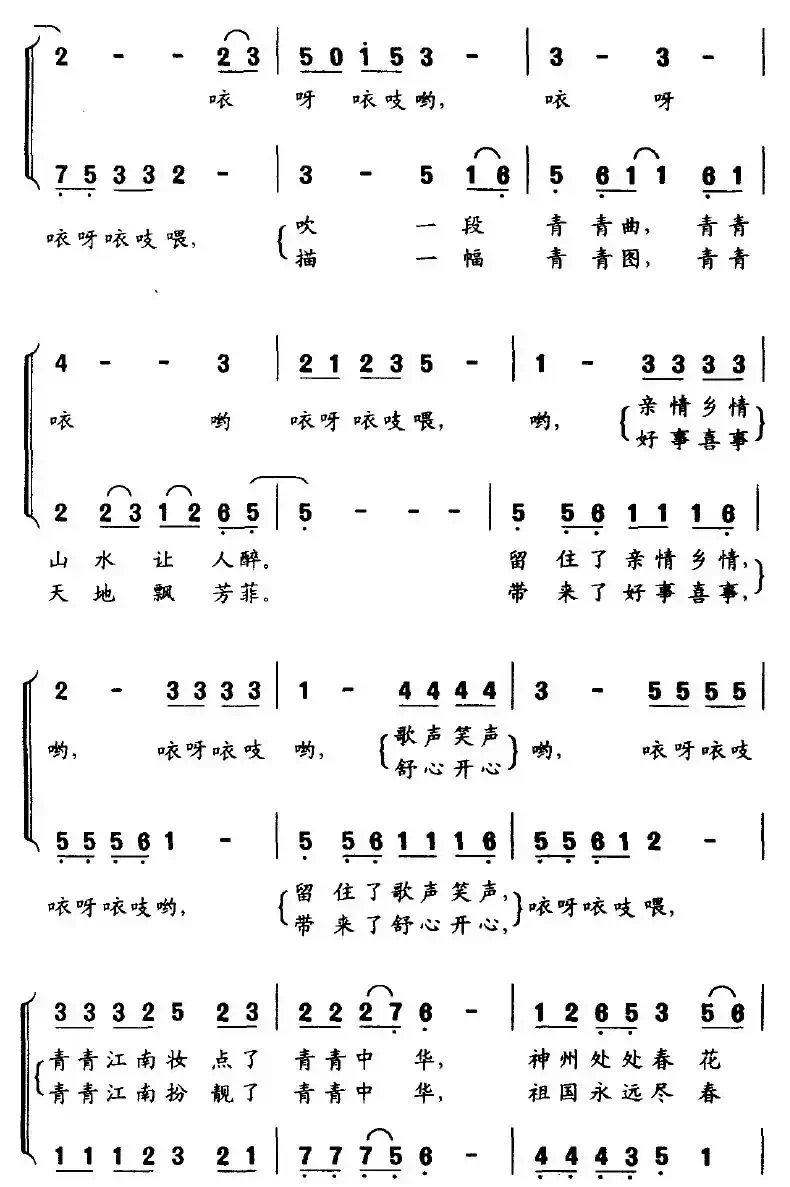 2 - - 2 3 | 5 0 i 5 3 - | 3 - 3 - |
咴 呀 咴吱哟, 咴 呀
7 5 3 3 2 - | 3 - 5 1 6 | 5 6 1 1 6 1 |
咴呀咴吱喂, { 吹 一段 青青曲, 青青
描 一幅 青青图, 青青
4 - - 3 | 2 1 2 3 5 - | 1 - 3 3 3 3 |
咴 哟 咴呀咴吱喂, 哟, { 亲情乡情 }
好事喜事
2 2 3 1 2 6 5 | 5 - - - | 5 5 6 1 1 1 6 |
山水让人醉。 留住了亲情乡情, }
天地飘芳菲。 带来了好事喜事,
2 - 3 3 3 3 | 1 - 4 4 4 4 | 3 - 5 5 5 5 |
哟, 咴呀咴吱 哟, { 歌声笑声 } 哟, 咴呀咴吱
舒心开心
5 5 5 6 1 - | 5 5 6 1 1 1 6 | 5 5 6 1 2 - |
咴呀咴吱哟, { 留住了歌声笑声, } 咴呀咴吱喂,
带来了舒心开心,
3 3 3 2 5 2 3 | 2 2 2 7 6 - | 1 2 6 5 3 5 6 |
{ 青青江南妆点了 青青中华, 神州处处春花
青青江南扮靓了 青青中华, 祖国永远尽春
1 1 1 2 3 2 1 | 7 7 7 5 6 - | 4 4 4 3 5 1 |